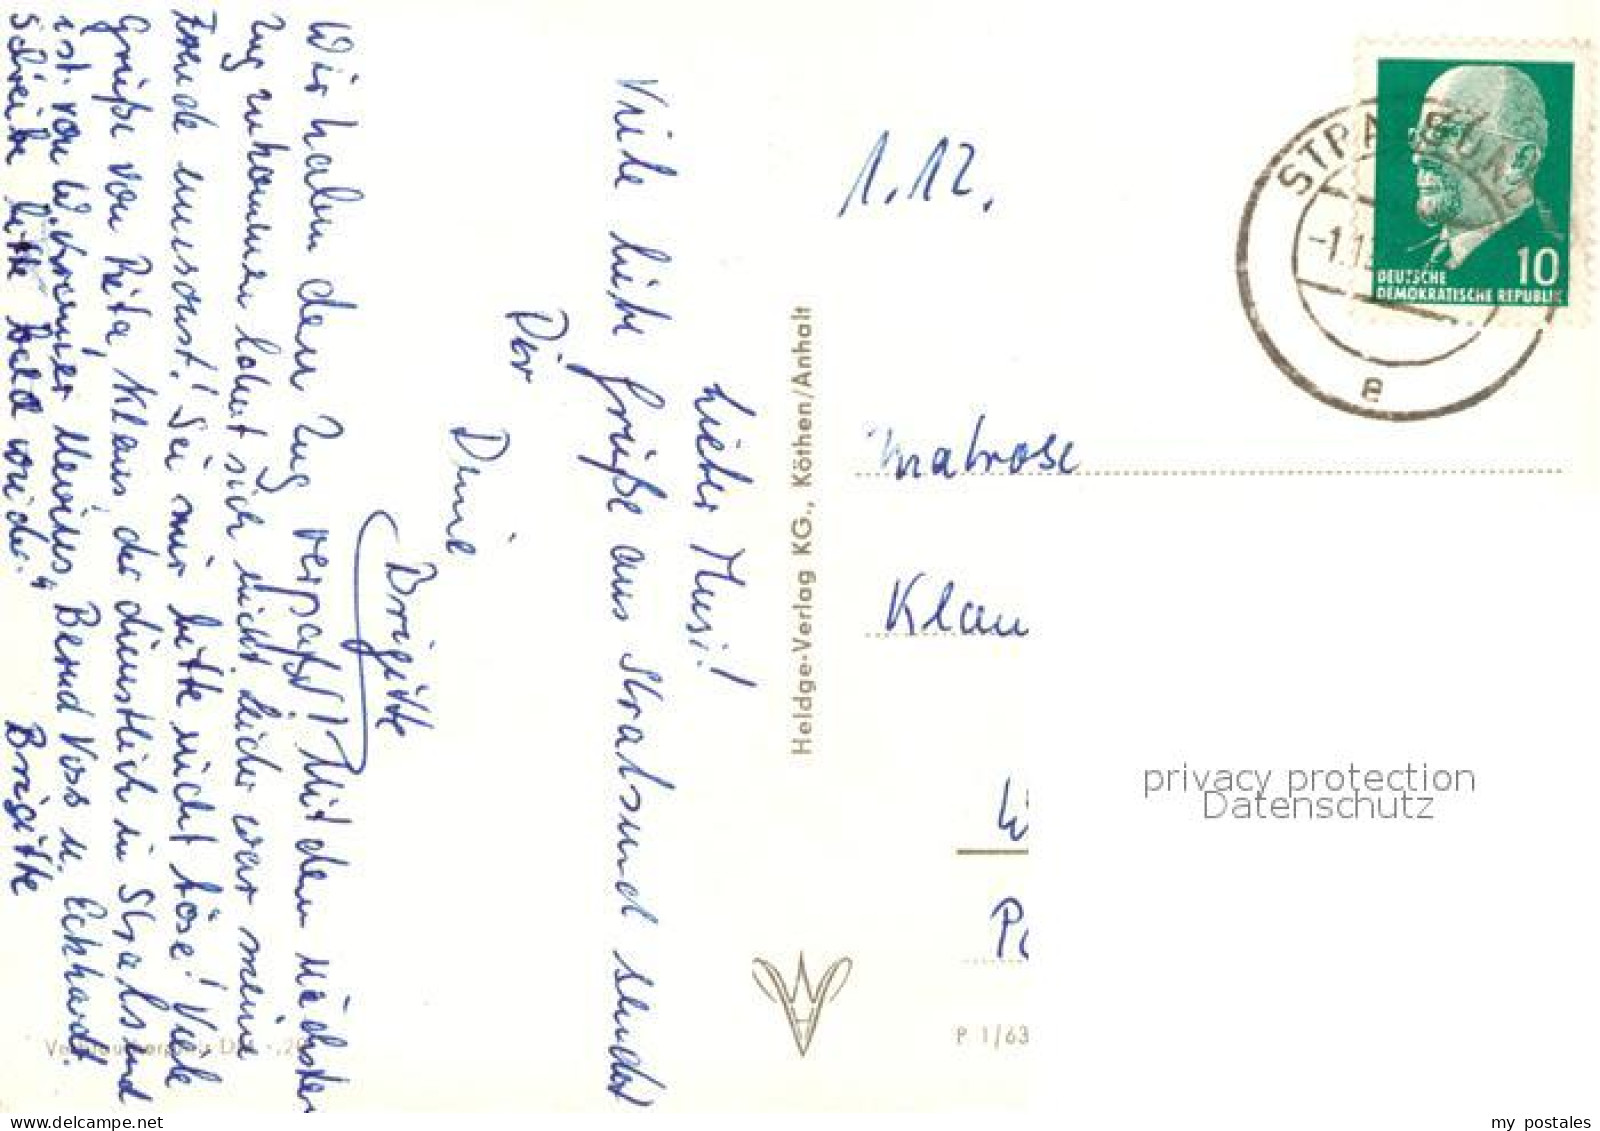 1.12.
Lieber Musi!
Viele liebe Grüße aus Stralsund sendet
Dir
Deine
Brigitte
Wir haben den Zug verpaßt! Mit dem nächsten
Zug zukommen lohnt sich nicht. Leider war meine
Freude umsonst! Sei mir bitte nicht böse! Viele
Grüße von Rita, Klaus, der dienstlich in Stralsund
ist. von Bernd Voss u. Eckhardt.
Schreibe bitte bald wieder. Brigitte
Heldge-Verlag KG., Köthen/Anhalt
STRALSUND
-1.12
e
10
DEUTSCHE
DEMOKRATISCHE REPUBLIK
Matrose
Klau
W
Po
P 1/63
privacy protection
Datenschutz
my postales